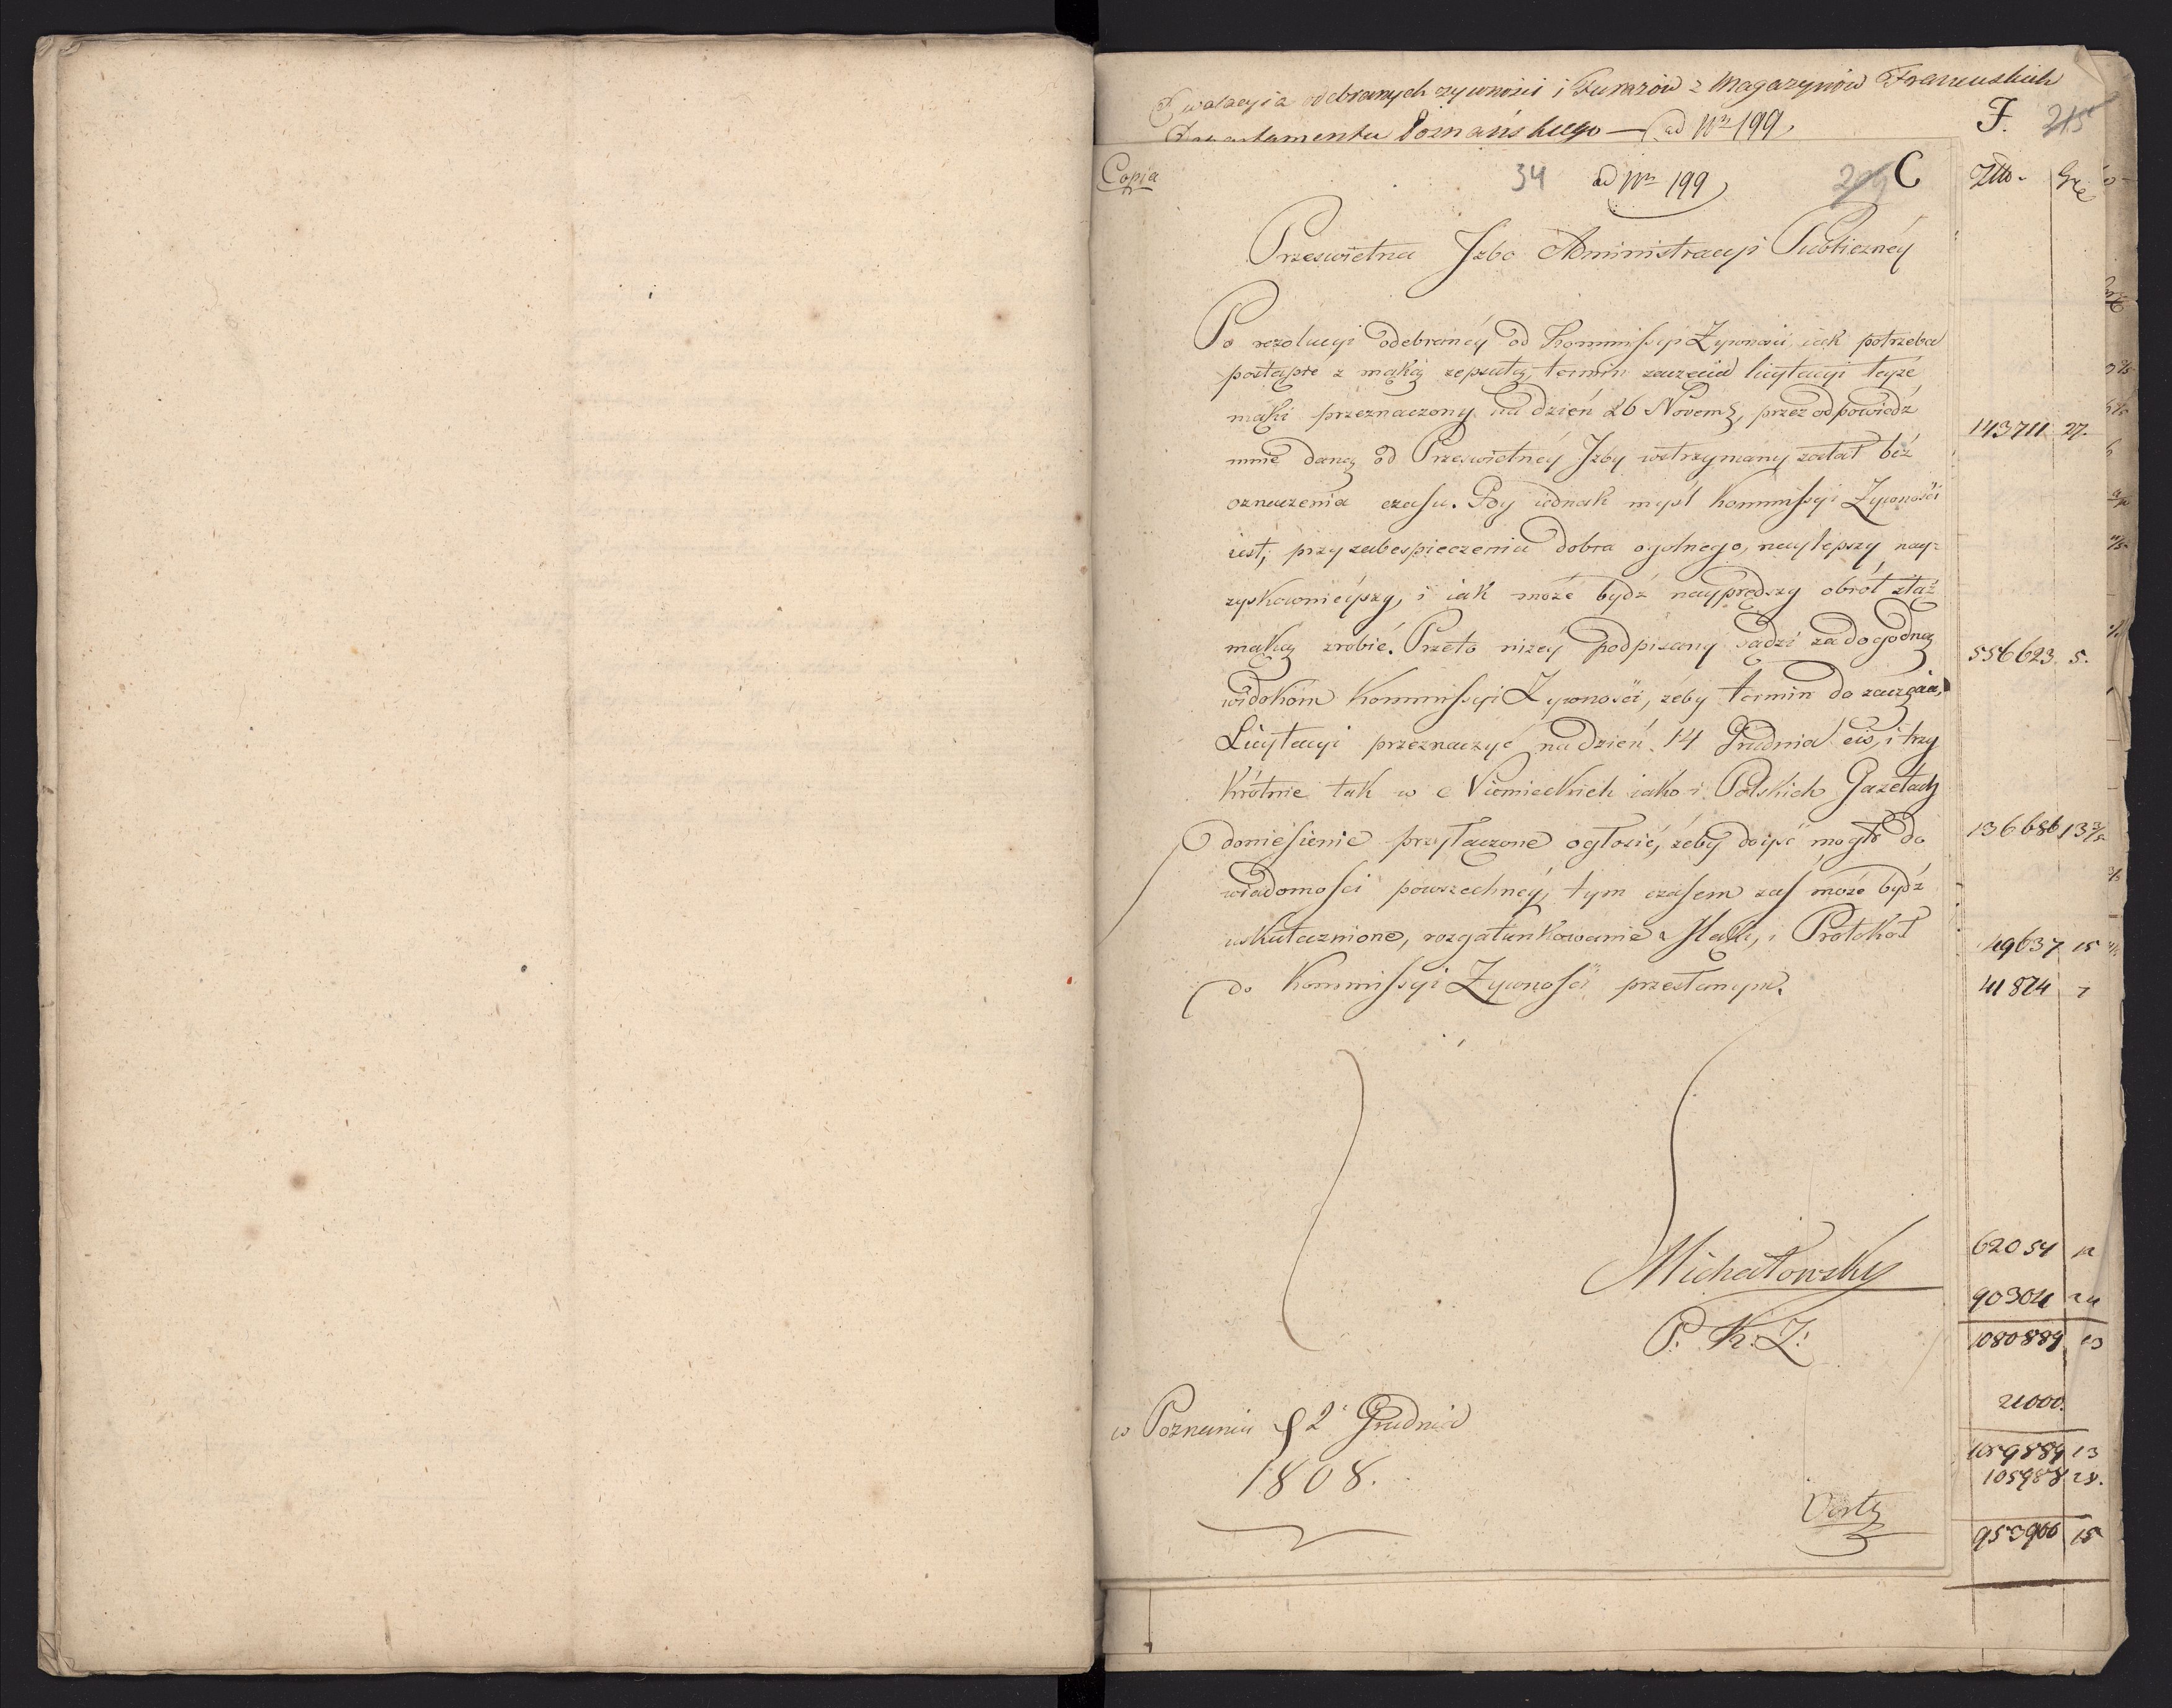 Ewaluacyja odebranych zywności i Furazów z Magazynów Francuskich
Departamentu Poznańskiego — ad Nrm 199.
F. 215
Copia
34 ad Nrm 199 209 C
Złto. Gr
Przeswietna Izbo Administracyi Publicznéy
Po rezolucyi odebranéy od Kommissyi Zywnosci iak potrzeba
postąpić z mąką zepsutą, termin zaczęcia licytacyi teyże
mąki przeznaczony na dzień 26 Novembr, przez odpowiedź
mnie daną od Przeswietnéy Izby wstrzymany został béz
oznaczenia czasu. Gdy iednak myśl Kommissyi Zywności
iest, przy zabespieczeniu dobra ogolnego, naylepszy, nay-
zyskownieyszy, i iak może bydź nayprędszy obrót z tąż
mąką zrobić. Przeto niżey podpisany sądzi za dogodną
widokom Kommissyi Zywności, żeby termin do zaczęcia
Licytacyi przeznaczyć na dzień 14 Grudnia eis, i trzy
krótnie tak w Niemieckich iako i Polskich Gazetach
doniesienie przyłączone ogłosić, żeby doiść mogło do
wiadomosci powszechnéy, tym czasem zas może bydź
uskutecznione, rozgatunkowanie Mąki, i Protokoł
do Kommissyi Zywnosci przesłanym.
Michałowsky
P. K. Z.
w Poznaniu d 2 Grudnia
1808.
Vertz
143711 27.
556623 5.
136686 13 3/5
49637 15
41874 7
62054 12
90304 24
1080889 13
21000.
1059889 13
105988 28.
953900 15